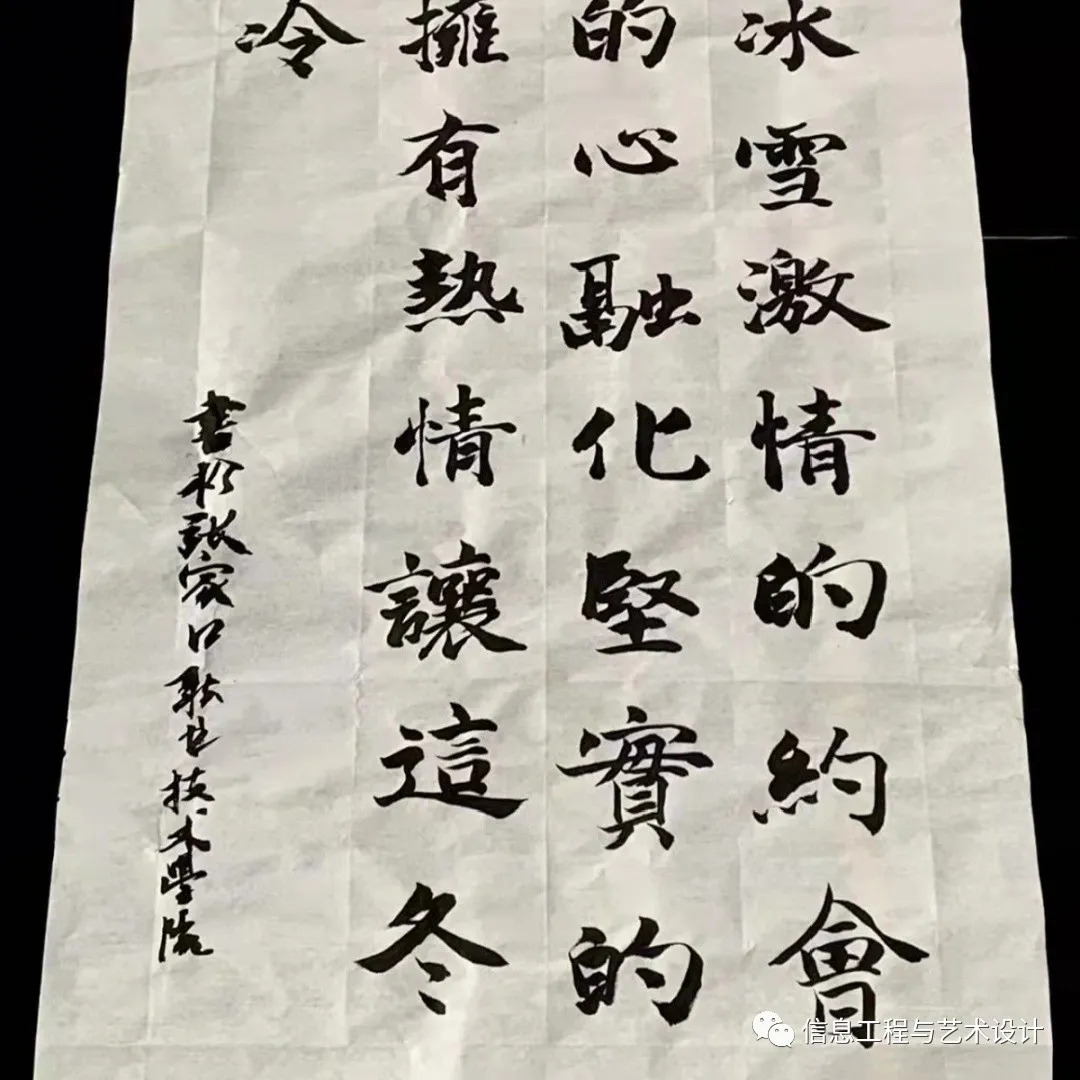 冰雪激情的約會
的心融化堅實的
擁有熱情讓這冬
冷
書於張家口職业技术學院
信息工程与艺术设计